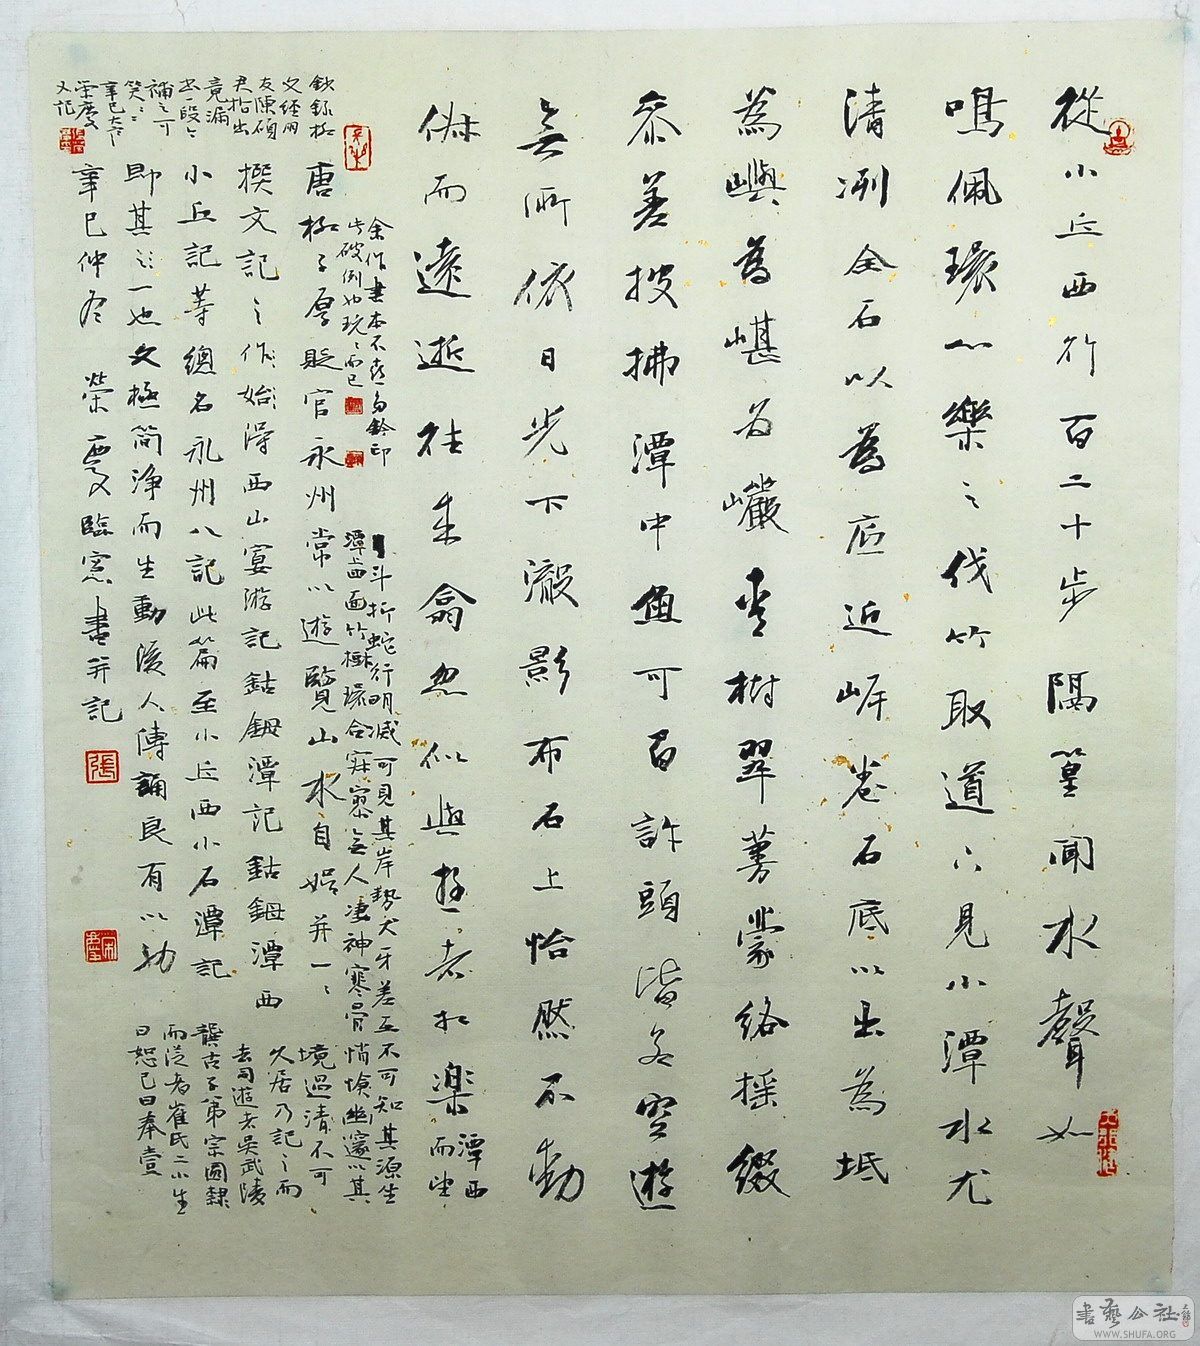 從小丘西行百二十步隔篁聞水聲如
鳴佩環心樂之伐竹取道下見小潭水尤
清冽全石以為底近岸卷石底以出為坻
為嶼為嵁為巖青樹翠蔓蒙絡搖綴
參差披拂潭中魚可百許頭皆若空遊
無所依日光下澈影布石上怡然不動
俶而遠逝往來翕忽似與遊者相樂
潭西
而望
斗折蛇行明滅可見其岸勢犬牙差互不可知其源坐
潭上四面竹樹環合寂寥無人凄神寒骨悄愴幽邃以其
境過清不可
久居乃記之而
去同遊者吳武陵
龔古予弟宗圓隸
而從者崔氏二小生
曰恕己曰奉壹
余作書本不喜多鈐印
此破例也玩玩而已
唐柳子厚貶官永州常以遊覽山水自娛并一一
撰文記之作始得西山宴游記鈷鉧潭記鈷鉧潭西
小丘記等總名永州八記此篇至小丘西小石潭記
即其之一也文極簡淨而生動後人傳誦良有以
辛巳仲冬 榮慶臨窗書并記
錄柳
文經朋
友陳碩
君指出
竟漏
書一段今
補之可
笑笑
辛巳大雪
榮慶
又記
張
書藝公社
WWW.SHUFA.ORG